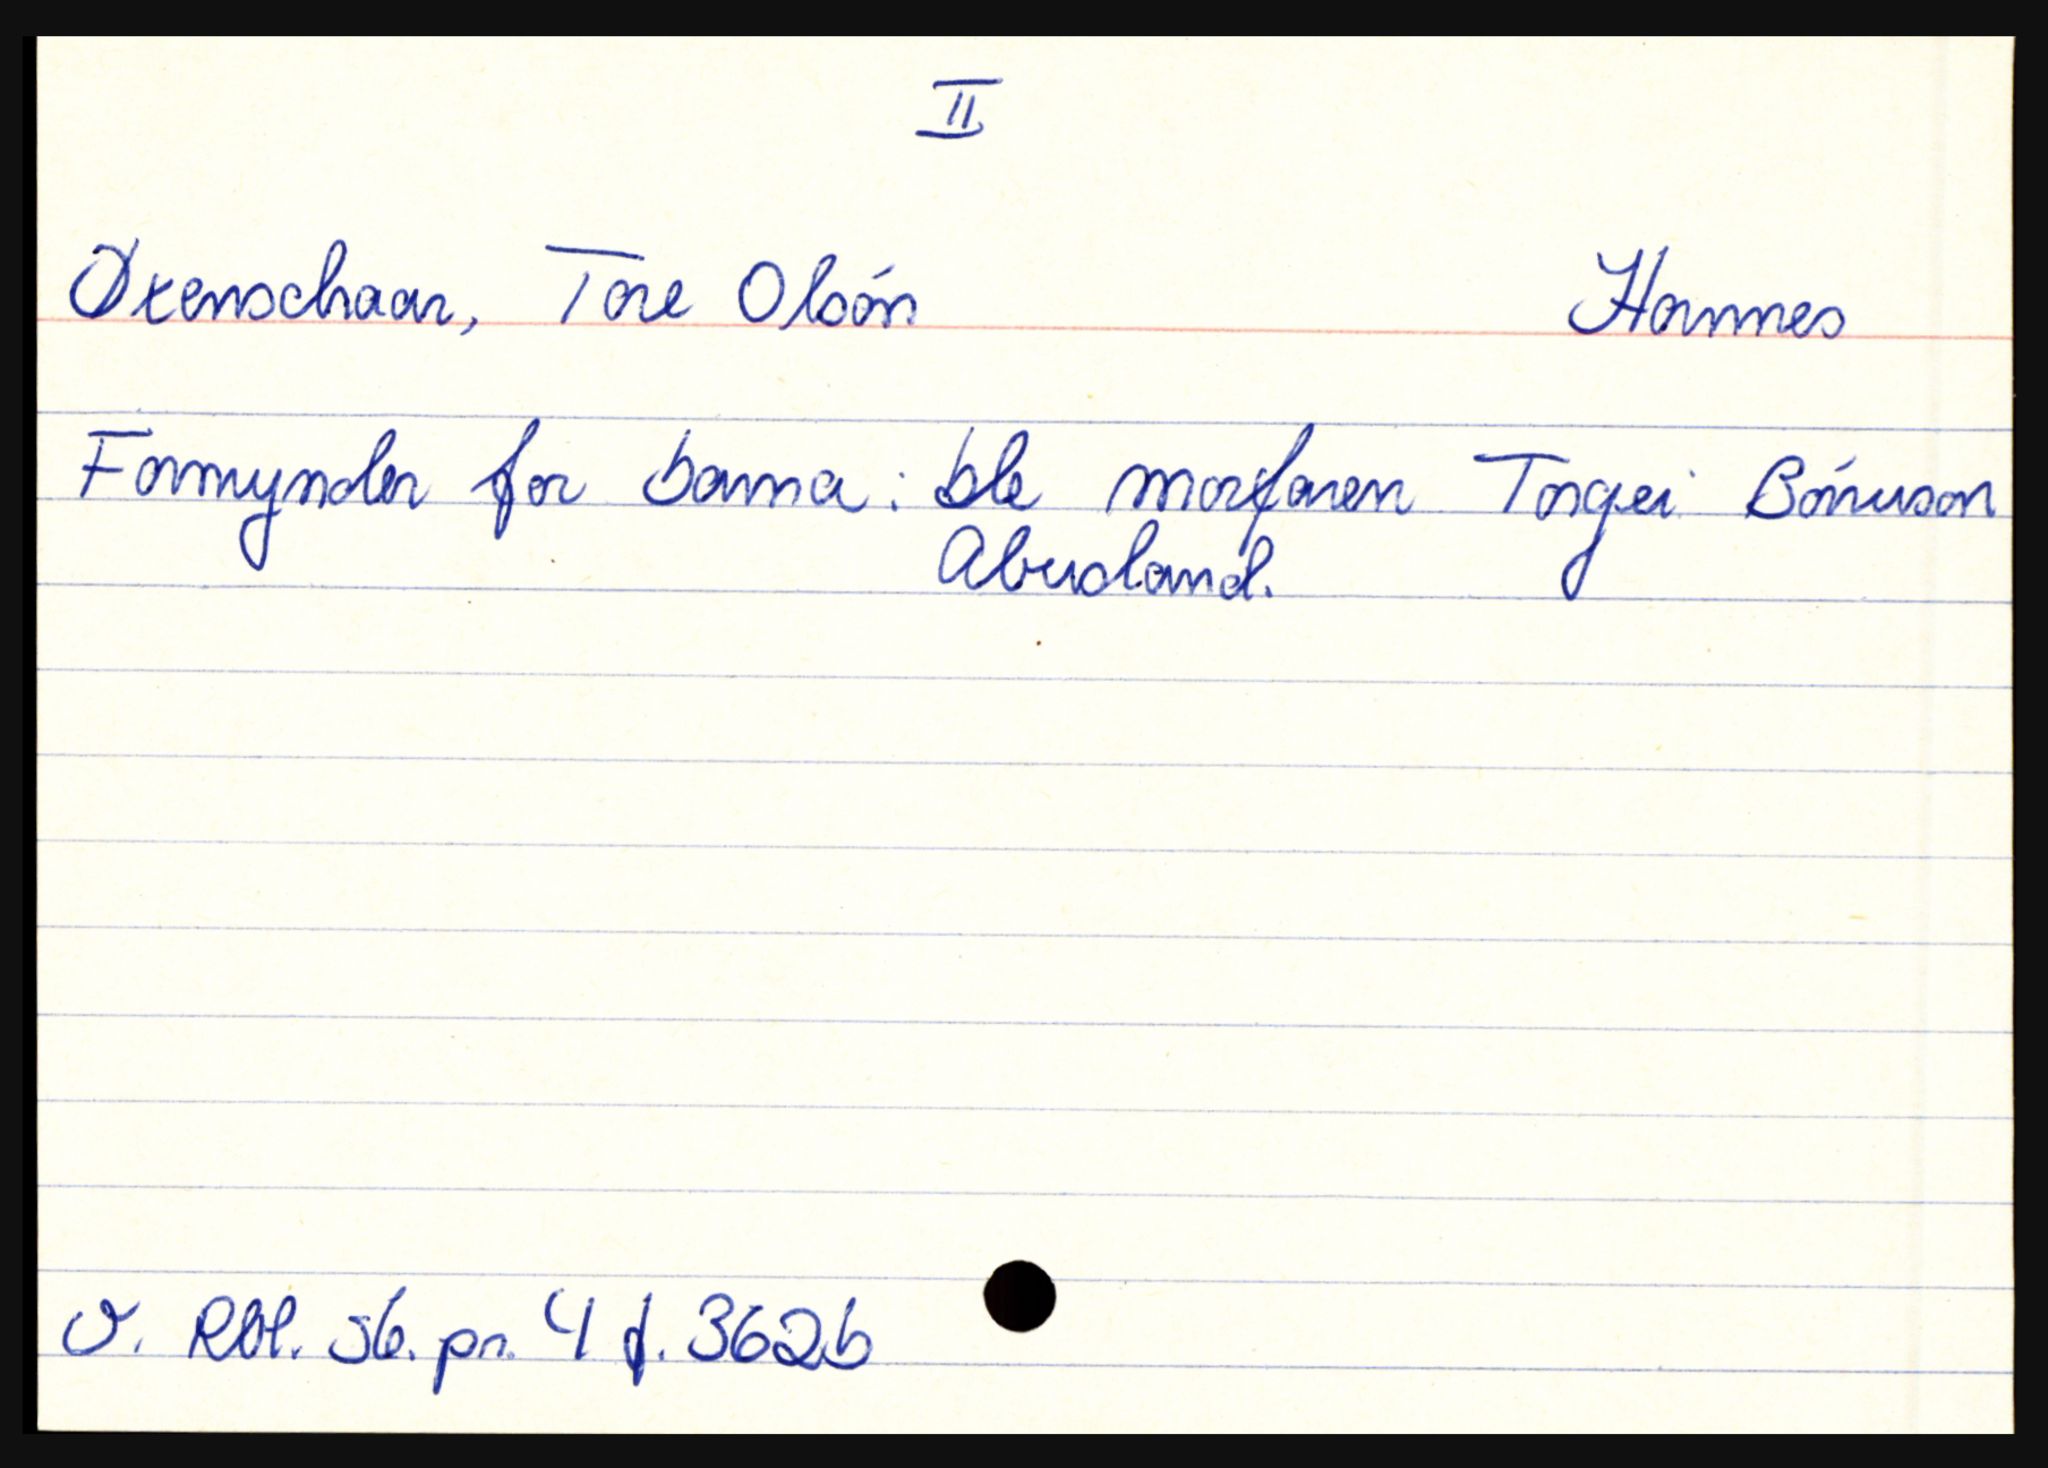 II
Øxenschaar, Tore Olsón Homnes
Formynder for barna: ble morfaren Torgei Bóruson
Abusland.
V. Rbl. sk. pr. 4 f. 362b